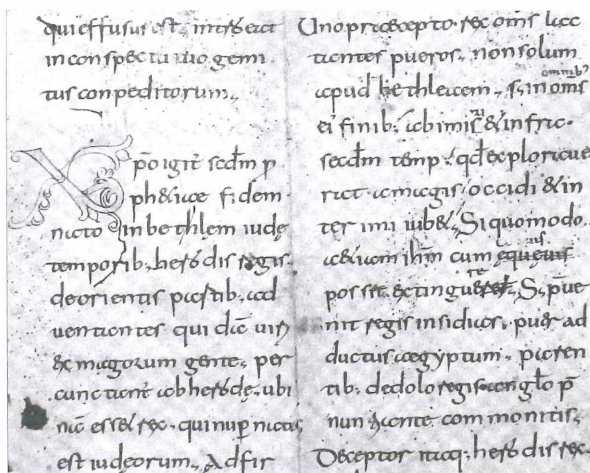 qui effusus est, intrɛat
in conspectu tuo gemi
tus conpeditorum,,
Xpo igit scdm p
phetice fidem
nato in bethlem iudę
temporib; herodis regis.
de orientis partib; ad
uentantes qui
ex magorum gente, per
cunctant ab herode. ubi
nam esset rex. qui nup natus
est iudeorum,, Adfir
Uno præcepto. rex oms lac
tantes pueros, non solum
apud bethleem. s; in oms
omnib;
ei finib; ab imis & infra.
secdm temp; qd explorauε
rat. a magis. occidi & in
ter imi iub&. Si quomodo.
&iam ihm cum
poss&. extinguere. S; puε
nit regis insidias. puer ad
ductus ægyptum. paren
tib; de dolo regis. anglo p
nuntiante. com monitis,
Deceptor itaq; herodis rex.